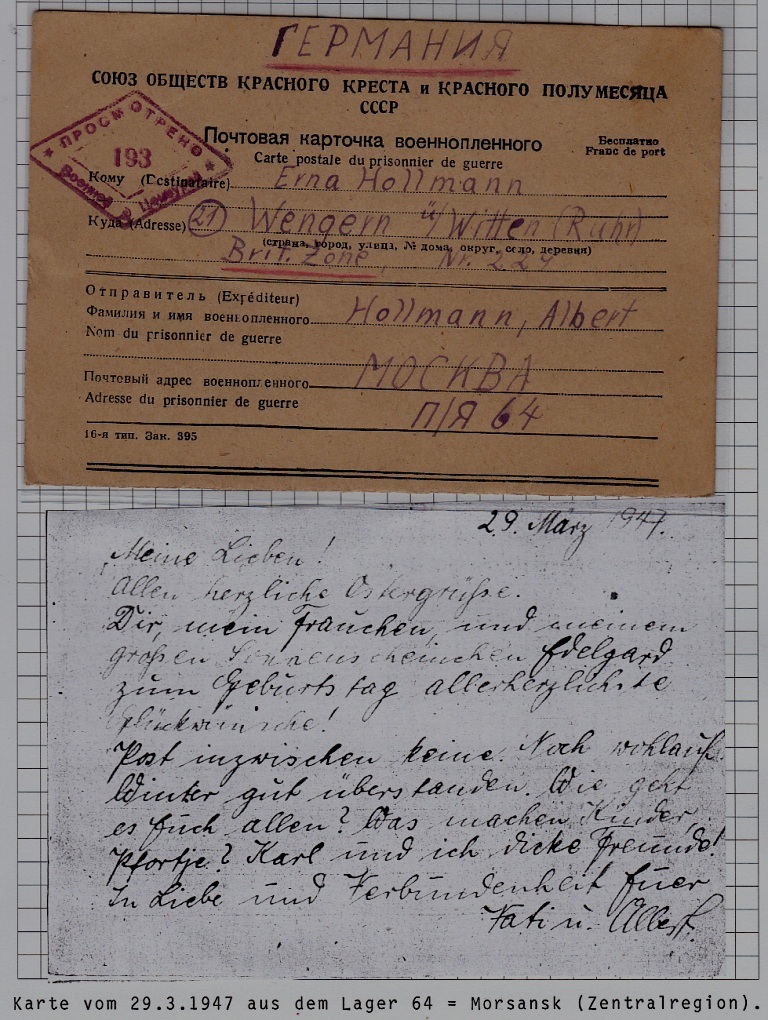 ГЕРМАНИЯ
СОЮЗ ОБЩЕСТВ КРАСНОГО КРЕСТА и КРАСНОГО ПОЛУМЕСЯЦА
СССР
ПРОСМОТРЕНО
193
Военной Цензурой
Почтовая карточка военнопленного
Carte postale du prisonnier de guerre
Бесплатно
Franc de port
Кому (Destinataire) Erna Hollmann
Куда (Adresse) (21) Wengern ü/Witten (Ruhr)
(страна, город, улица, № дома, округ, село, деревня)
Brit. Zone, Nr. 224
Отправитель (Expéditeur)
Фамилия и имя военнопленного Hollmann, Albert
Nom du prisonnier de guerre
Почтовый адрес военнопленного МОСКВА
Adresse du prisonnier de guerre П/Я 64
16-я тип. Зак. 395
29. März 1947.
Meine Lieben!
Allen herzliche Ostergrüsse.
Dir, mein Frauchen, und meinem
großen Sonnenscheinchen Edelgard
zum Geburtstag allerherzlichste
Glückwünsche!
Post inzwischen keine. Noch wohlauf.
Winter gut überstanden. Wie geht
es Euch allen? Was machen Kinder,
Karl und ich dicke Freunde!
In Liebe und Verbundenheit Euer
Vati u. Albert.
Karte vom 29.3.1947 aus dem Lager 64 = Morsansk (Zentralregion).